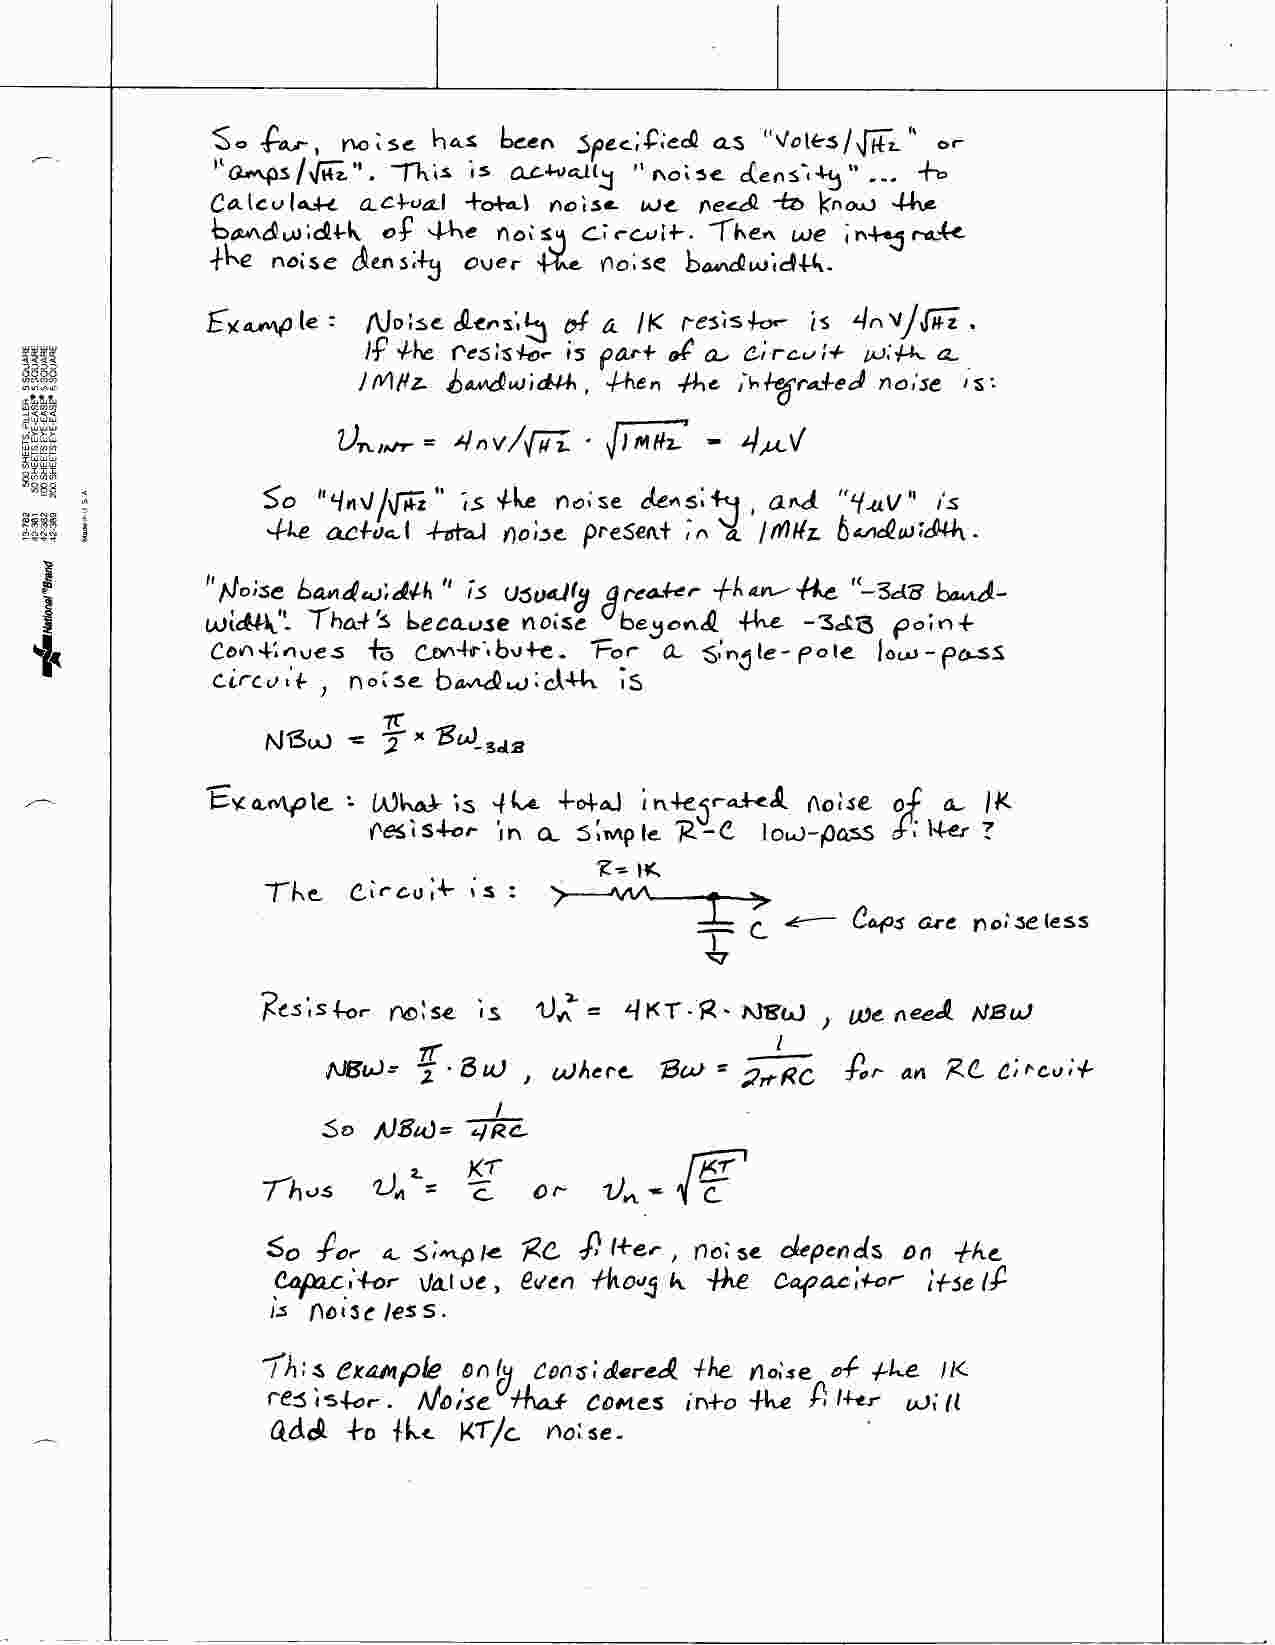 So far, noise has been specified as "Volts/√Hz" or
"amps/√Hz". This is actually "noise density"... to
Calculate actual total noise we need to know the
bandwidth of the noisy circuit. Then we integrate
the noise density over the noise bandwidth.
Example: Noise density of a 1K resistor is 4nV/√Hz.
If the resistor is part of a circuit with a
1MHz bandwidth, then the integrated noise is:
Vn INT = 4nV/√Hz · √1MHz = 4µV
So "4nV/√Hz" is the noise density, and "4µV" is
the actual total noise present in a 1MHz bandwidth.
"Noise bandwidth" is usually greater than the "-3dB band-
width". That's because noise beyond the -3dB point
continues to contribute. For a single-pole low-pass
circuit, noise bandwidth is
NBW = π/2 × BW-3dB
Example: What is the total integrated noise of a 1K
resistor in a simple R-C low-pass filter?
R=1K
The circuit is:
C ← Caps are noiseless
Resistor noise is Vn² = 4KT·R·NBW, we need NBW
NBW = π/2 · BW, where BW = 1/2πRC for an RC circuit
So NBW = 1/4RC
Thus Vn² = KT/C or Vn = √KT/C
So for a simple RC filter, noise depends on the
capacitor value, even though the capacitor itself
is noiseless.
This example only considered the noise of the 1K
resistor. Noise that comes into the filter will
add to the KT/C noise.
13-782 500 SHEETS, FILLER 5 SQUARE
42-381 50 SHEETS EYE-EASE® 5 SQUARE
42-382 100 SHEETS EYE-EASE® 5 SQUARE
42-389 200 SHEETS EYE-EASE® 5 SQUARE
Made in U.S.A.
National®Brand